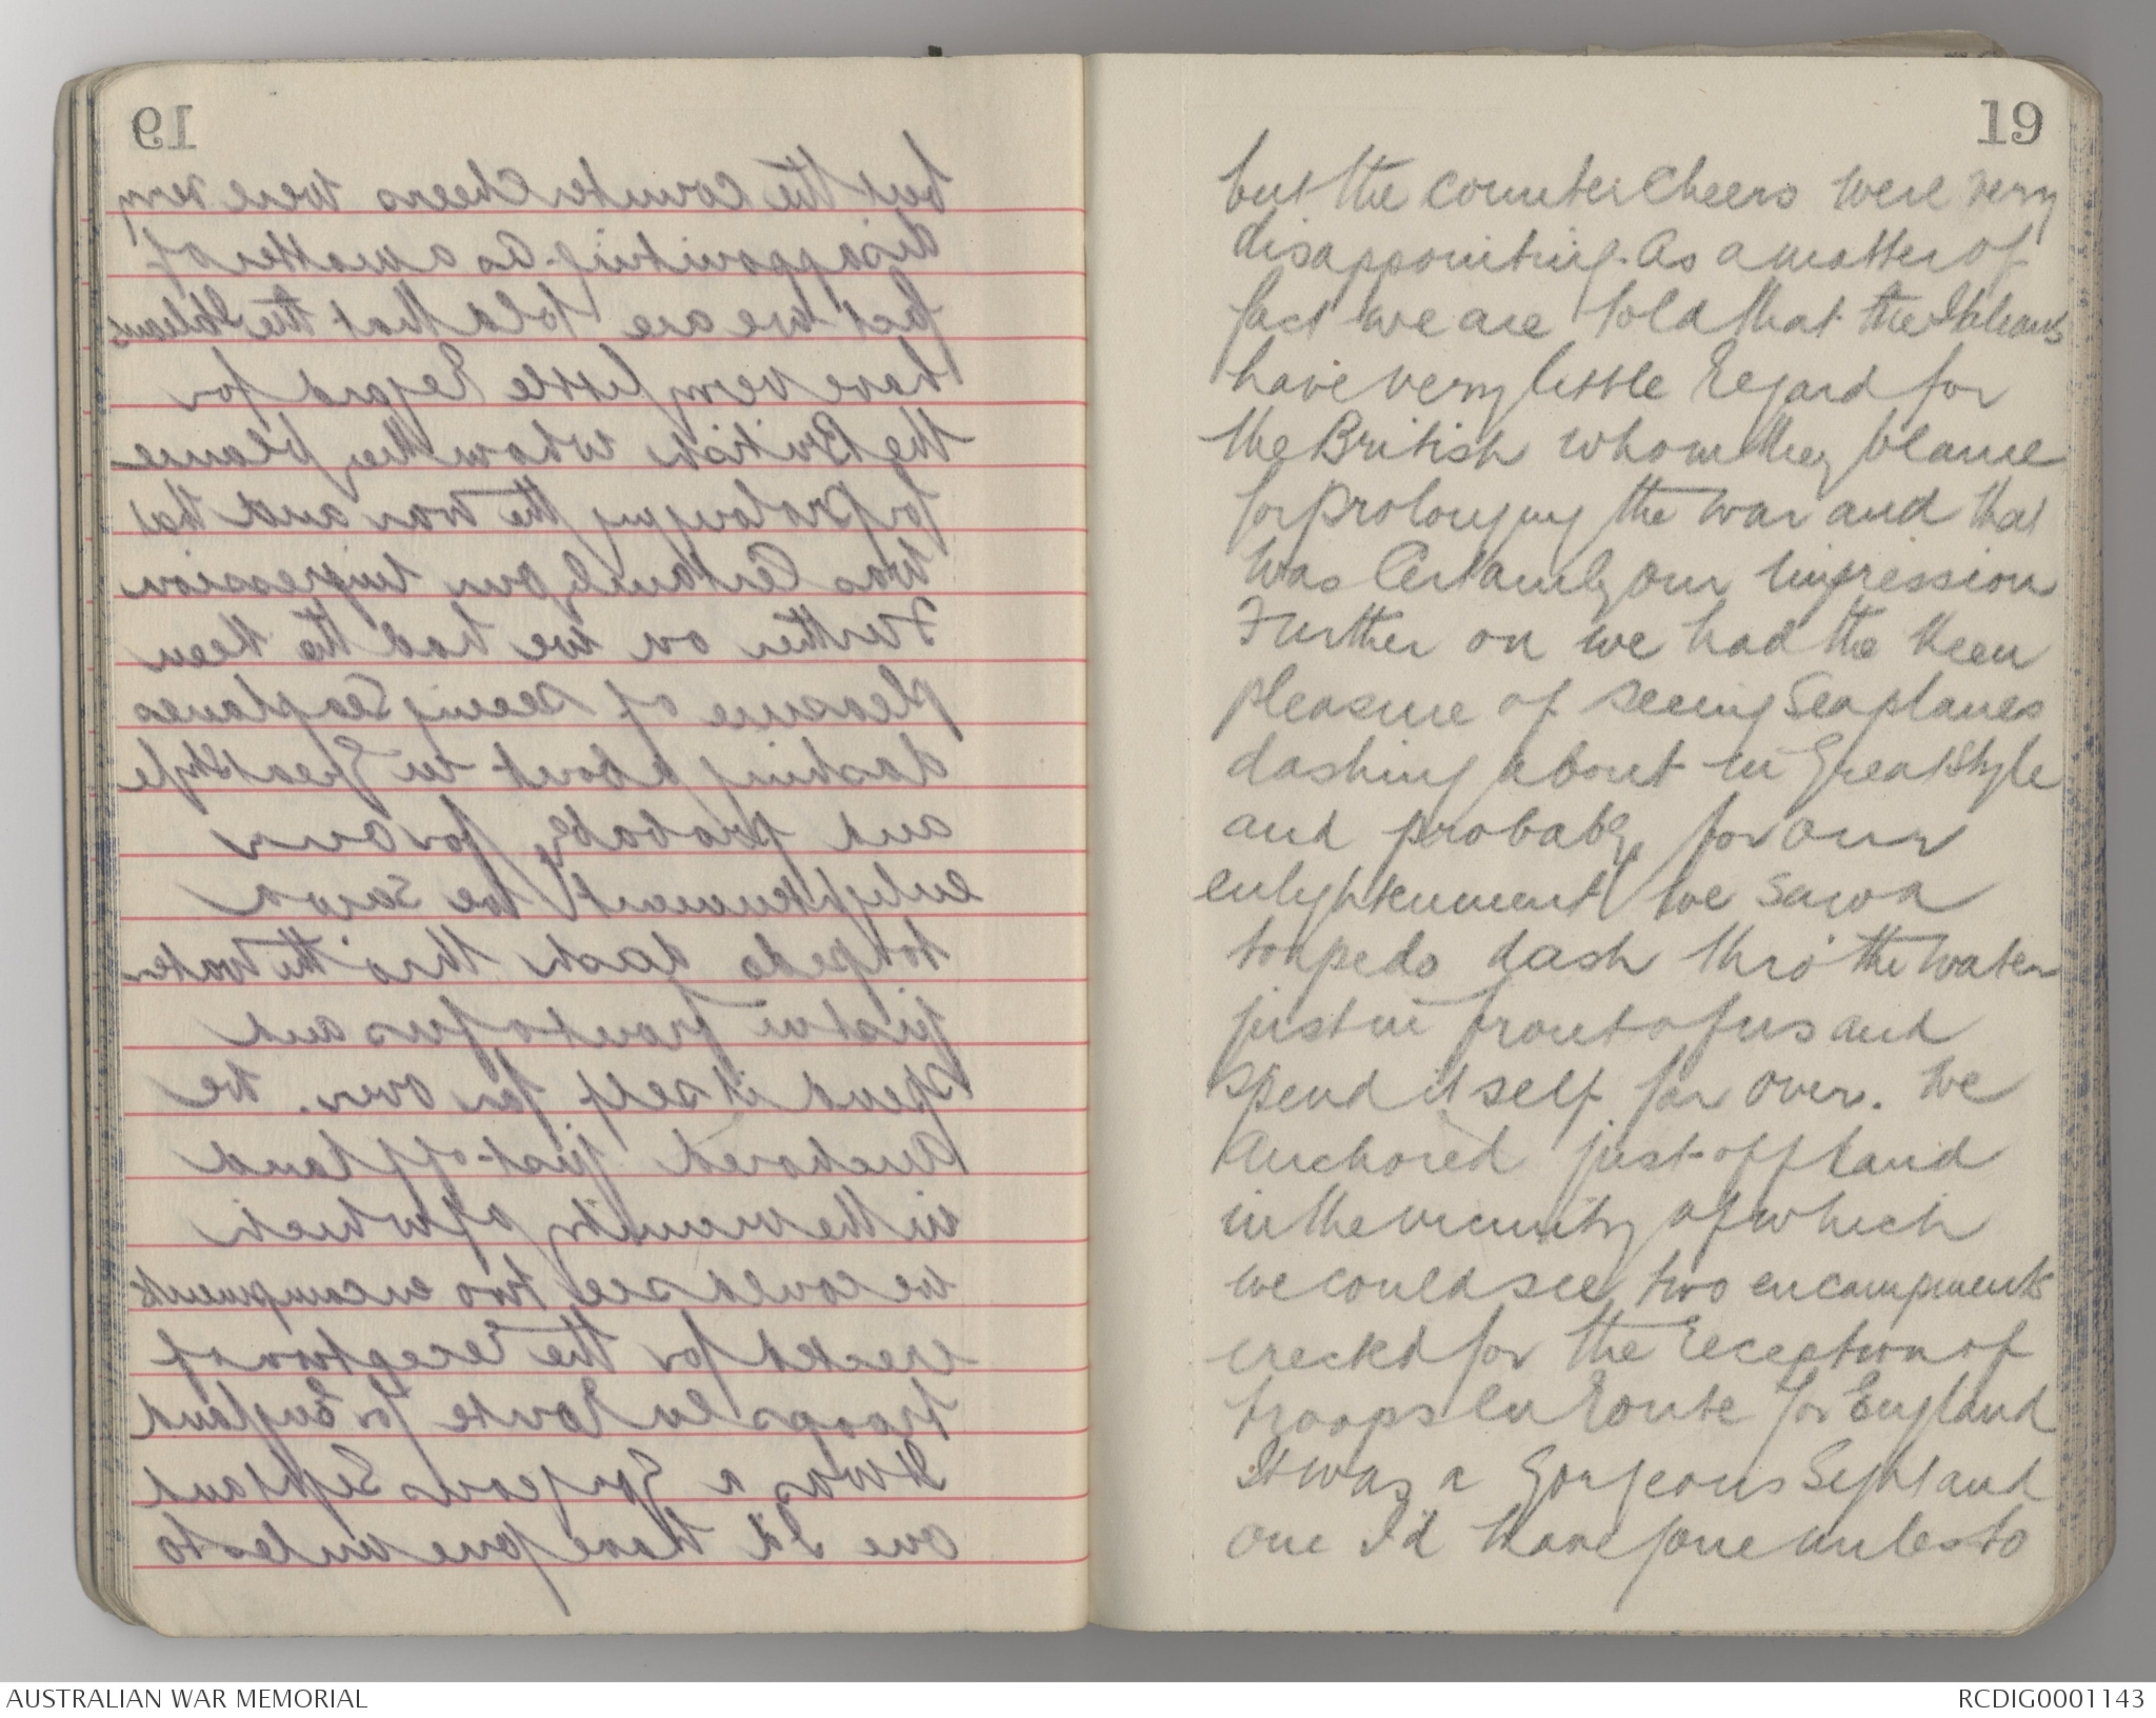 19
but the counter Cheers were very
disappointing. As a matter of
fact we are told that the Italians
have very little Regard for
the British whom they blame
for prolonging the war and that
was Certainly our impression
Further on we had the keen
pleasure of seeing Seaplanes
dashing about in Great Style
and probably for our
enlightenment we saw a
torpedo dash thro' the water
just in front of us and
spend itself far over. We
Anchored just off land
in the vicinity of which
we could see two encampments
erected for the Reception of
troops en Route for England
It was a Gorgeous Sight and
one I'd have gone miles to
AUSTRALIAN WAR MEMORIAL
RCDIG0001143